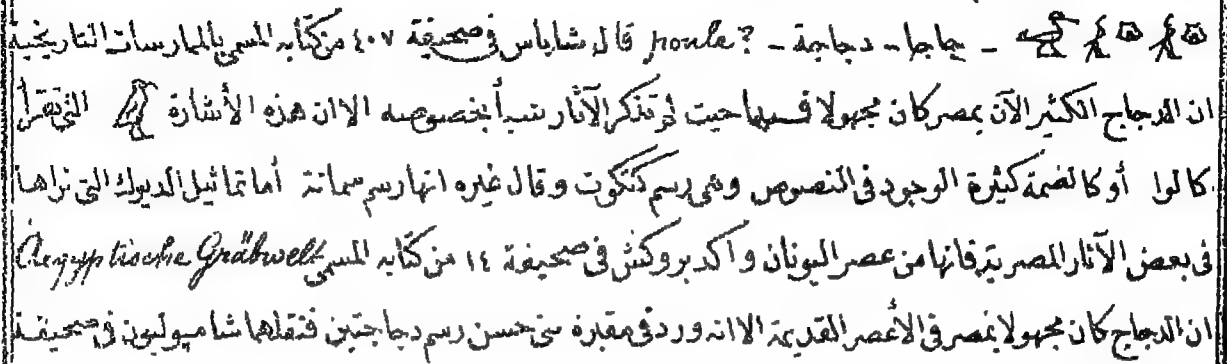 - جاجا - دجاجة - ? poule قال شاباس فى صحيفة ٤٠٧ من كتابه المسمى بالممارسات التاريخية
ان الدجاج الكثير الآن بمصر كان مجهولا قديما حيث لم تذكر الآثار شيأ بخصوصه الا ان هذه الأشارة التى تقرأ
كالوا أو كالضمة كثيرة الوجود فى النصوص وهى رسم كتكوت وقال غيره انها رسم سمانة أما تماثيل الديوك التى نراها
فى بعض الآثار المصرية فانها من عصر اليونان واكد بروكش فى صحيفة ١٤ من كتابه المسمى Aegyptische Gräbwelt
ان الدجاج كان مجهولا بمصر فى الأعصر القديمة الا انه ورد فى مقبرة بنى حسن رسم دجاجتين فنقلها شامبوليون فى صحيفة